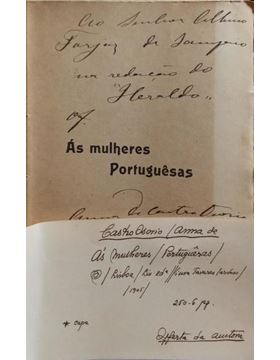 Ao Senhor Albino
Forjaz de Sampaio
na redação do
"Heraldo"
of.
Ás mulheres
Portuguêsas
Anna de Castro Osorio
Castro Osorio / Anna de
Ás Mulheres / Portuguêsas /
/ Lisboa / Liv. edª / Viuva Tavares Cardoso /
/ 1905 /
250-6 pg.
* capa
Offerta da auctora